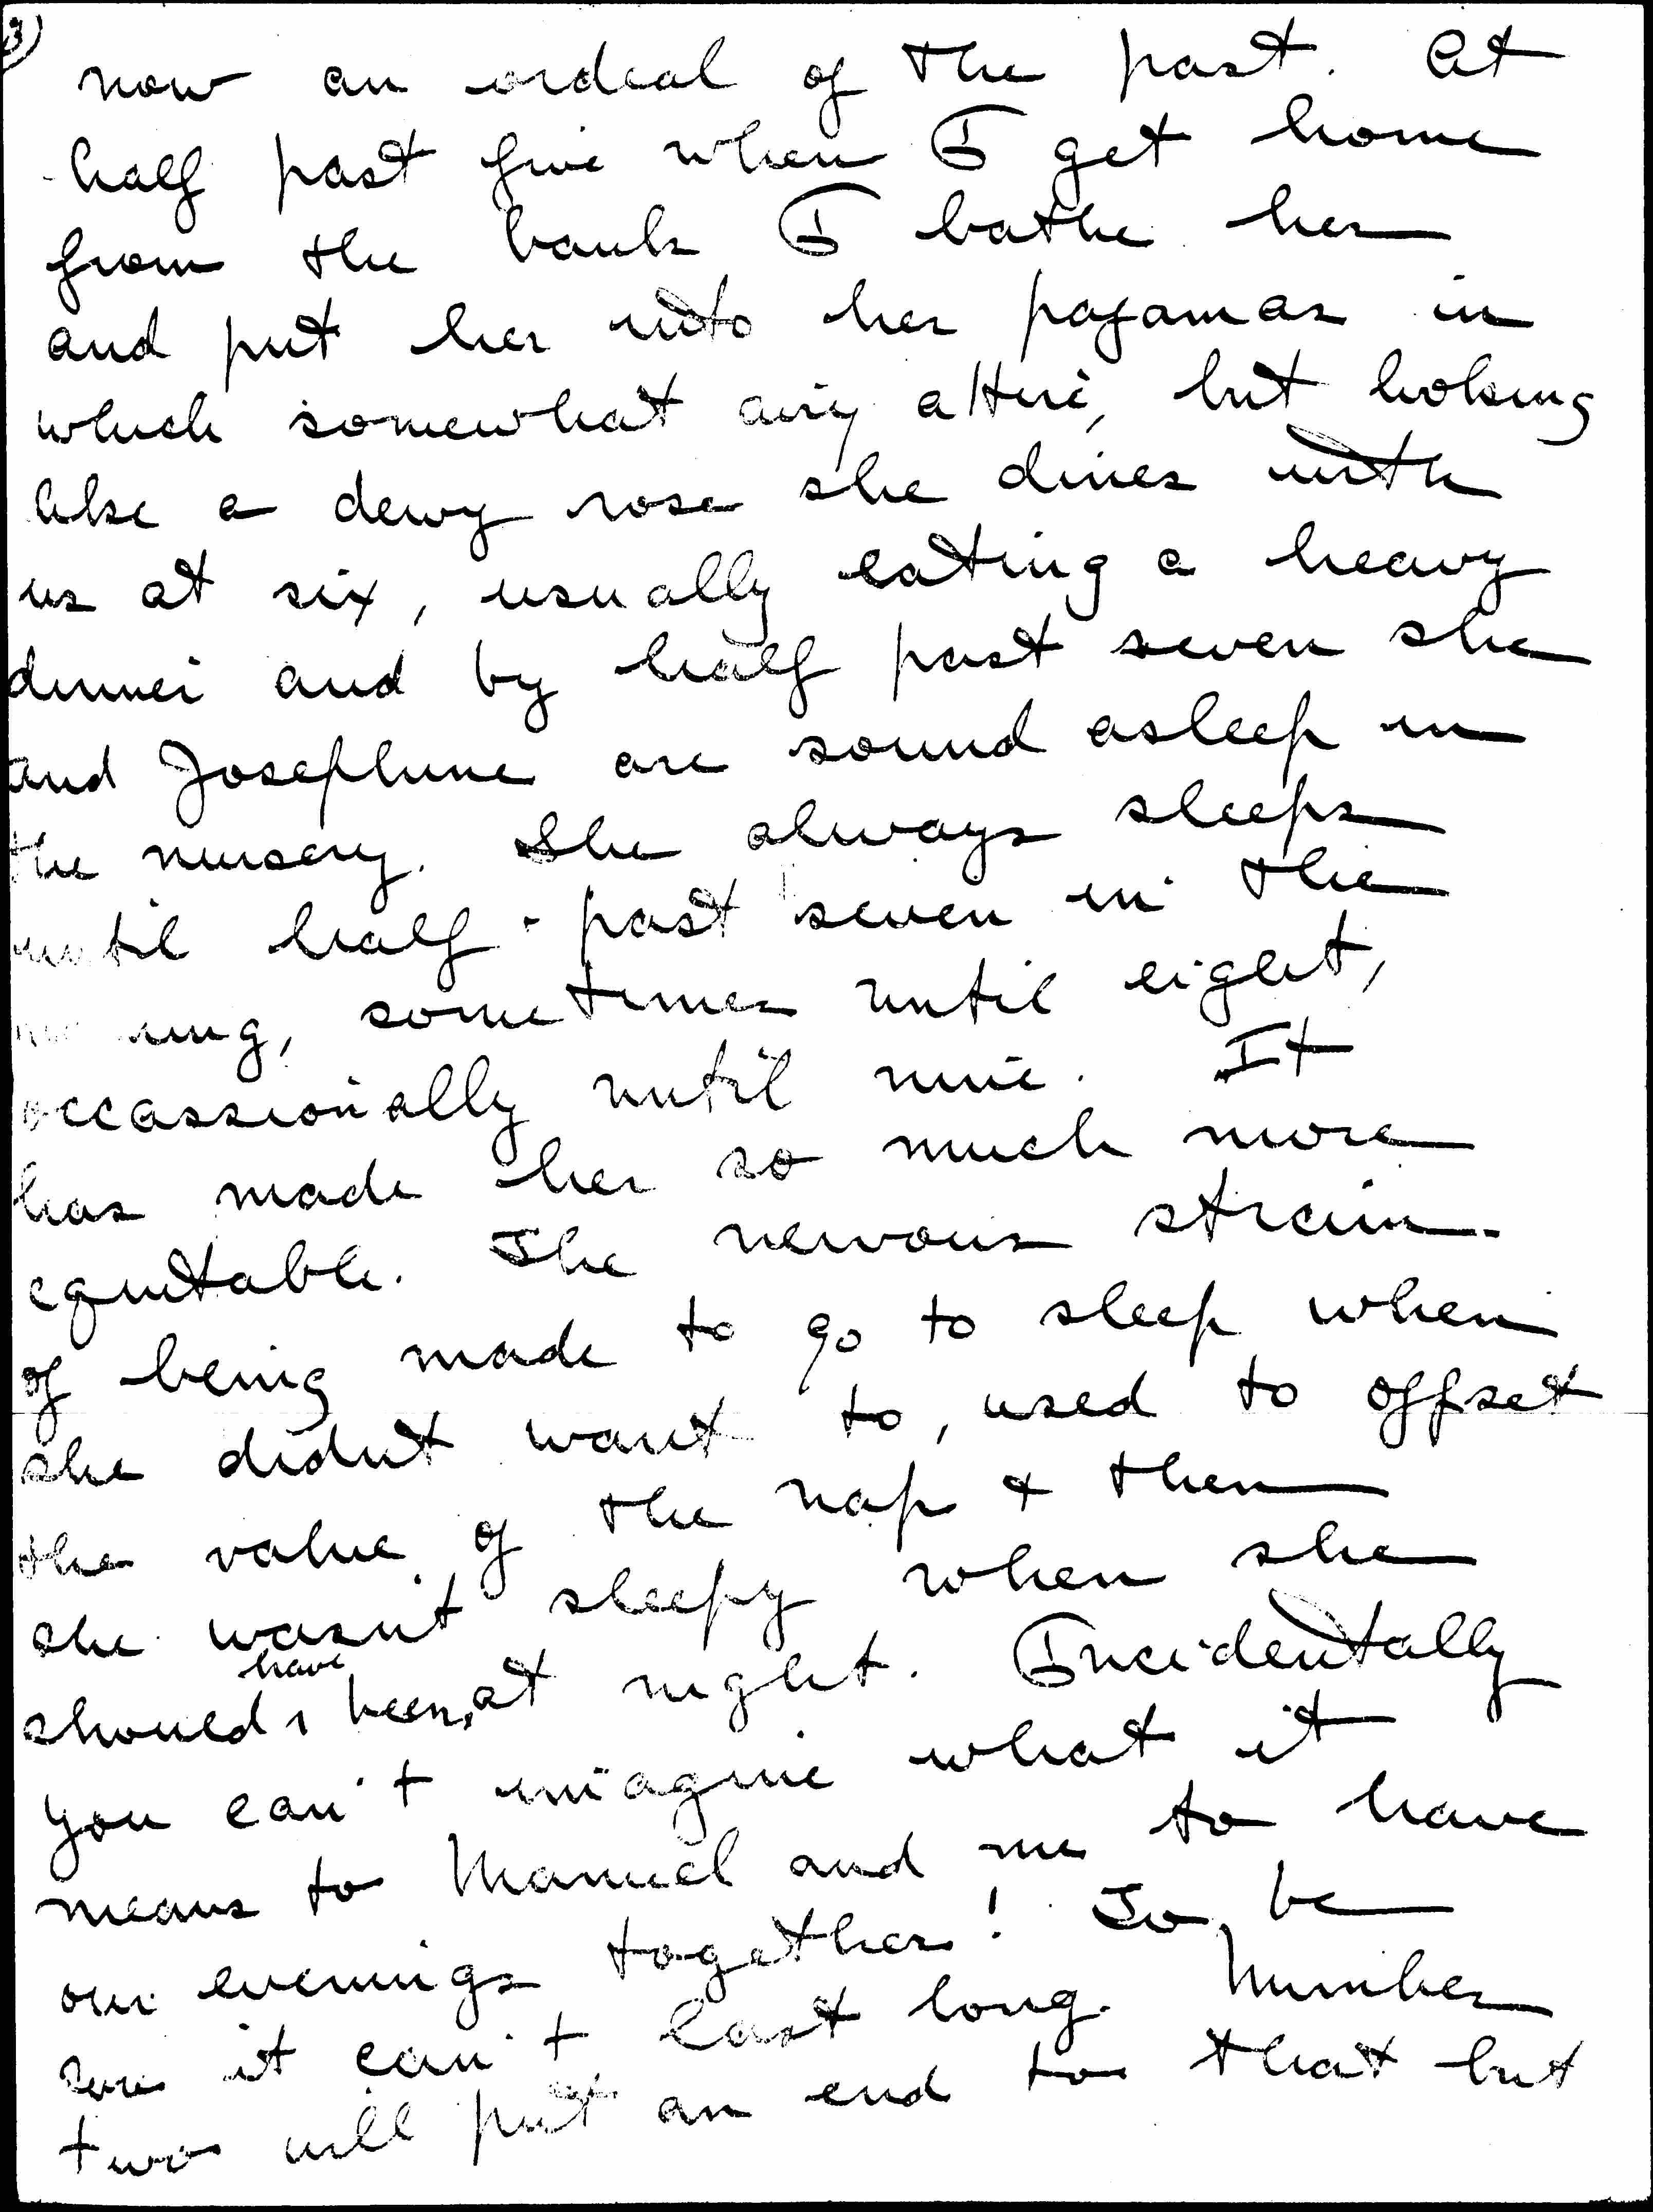 3)
now an ordeal of the past. At
half past five when I get home
from the bank I bathe her
and put her into her pajamas in
which somewhat airy attire, but looking
like a dewy rose she dines with
us at six, usually eating a heavy
dinner and by half past seven she
and Josephine are sound asleep in
the nursery. She always sleeps
until half-past seven in the
morning, sometimes until eight,
occassionally until nine. It
has made her so much more
equitable. The nervous strain
of being made to go to sleep when
she didn't want to, used to offset
the value of the nap & then
she wasn't sleepy when she
should have been, at night. Incidentally
you can't imagine what it
means to Manuel and me to have
our evenings together! To be
sure it can't last long. Number
two will put an end to that but